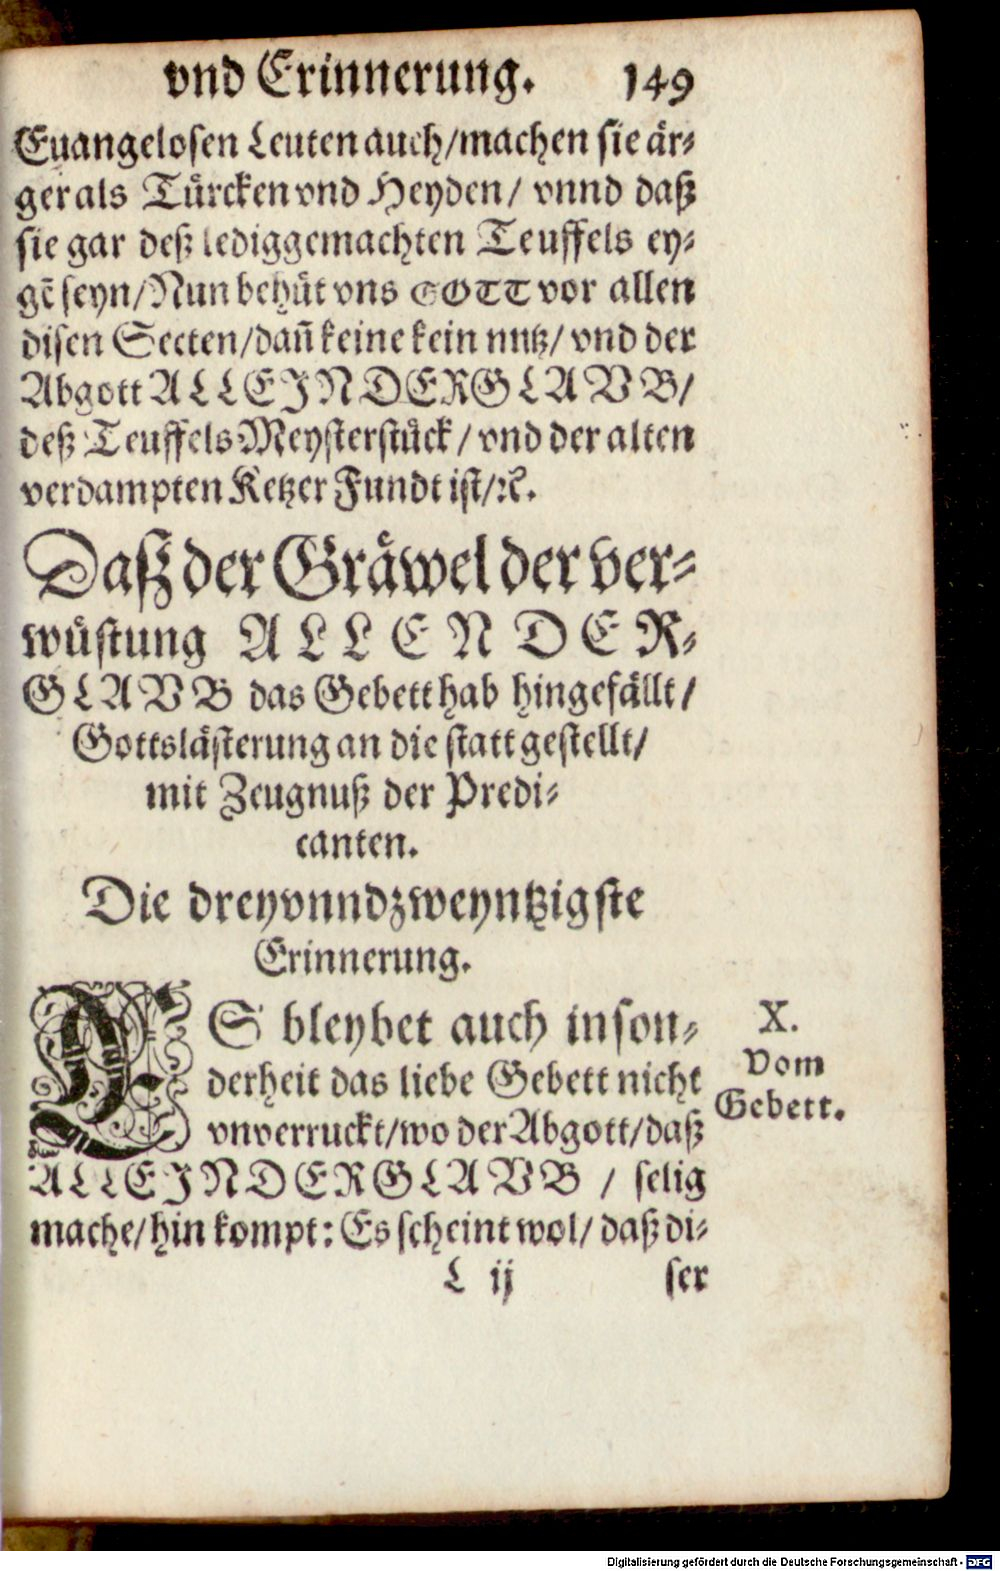 vnd Erinnerung. 149
Euangelosen Leuten auch/machen sie är⸗
ger als Türcken vnd Heyden/ vnnd daß
sie gar deß lediggemachten Teuffels ey⸗
gẽ seyn/Nun behüt vns GOTT vor allen
disen Secten/dañ keine kein nutz/ vnd der
Abgott ALLEINDERGLAVB/
deß Teuffels Meysterstück/ vnd der alten
verdampten Ketzer Fundt ist/ꝛc.
Daß der Gräwel der ver⸗
wüstung ALLENDER⸗
GLAVB das Gebett hab hingefällt/
Gottslästerung an die statt gestellt/
mit Zeugnuß der Predi⸗
canten.
Die dreyvnndzweyntzigste
Erinnerung.
ES bleybet auch inson⸗
derheit das liebe Gebett nicht
vnverruckt/wo der Abgott/daß
ALLEINDERGLAVB / selig
mache/hin kompt: Es scheint wol/ daß di⸗
L ij ser
X.
Vom
Gebett.
Digitalisierung gefördert durch die Deutsche Forschungsgemeinschaft - DFG